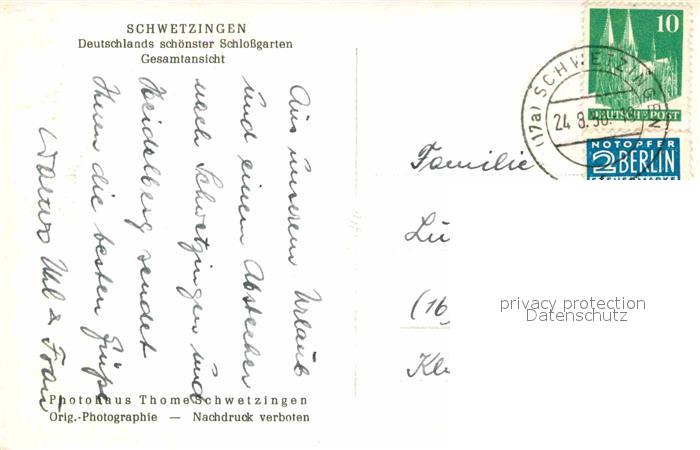 SCHWETZINGEN
Deutschlands schönster Schloßgarten
Gesamtansicht
Aus unserem Urlaub
und einem Abstecher
nach Schwetzingen und
Heidelberg sendet
Ihnen die besten Grüße
Uhl & Frau
Photohaus Thome Schwetzingen
Orig.-Photographie — Nachdruck verboten
10
DEUTSCHE POST
(17a) SCHWETZINGEN
24.8.50.
NOTOPFER
2 BERLIN
STEUERMARKE
Familie
Lu
(16
Kl
privacy protection
Datenschutz